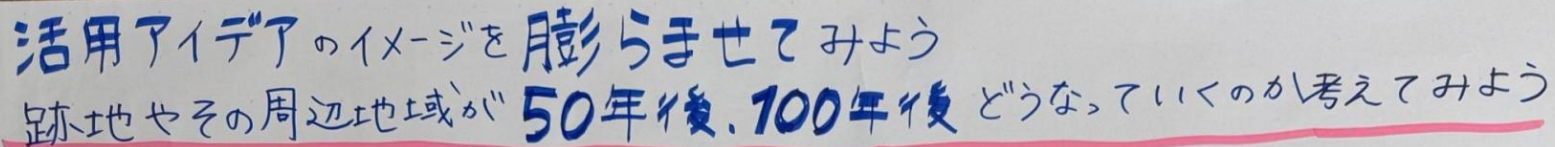 活用アイデアのイメージを膨らませてみよう
跡地やその周辺地域が50年後、100年後どうなっていくのか考えてみよう